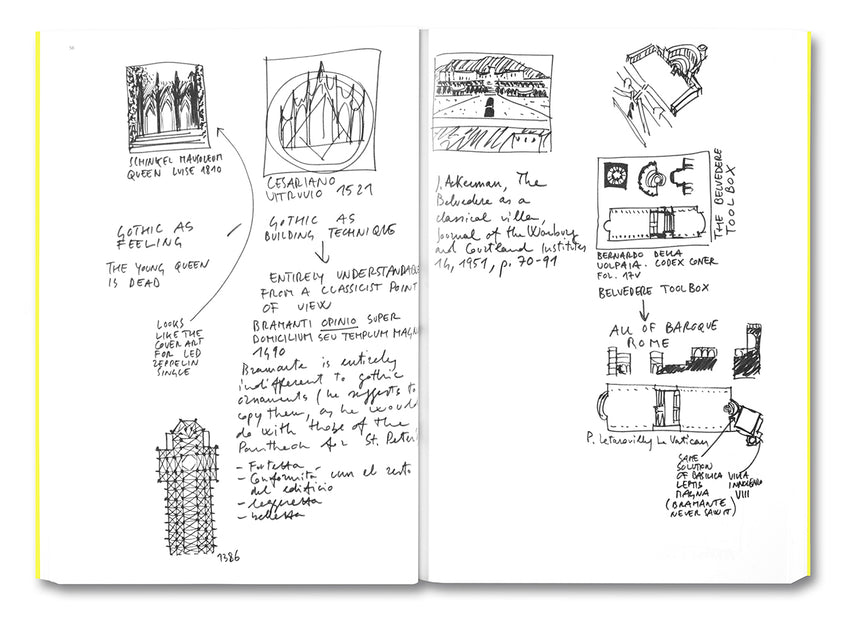 SCHINKEL MAUSOLEUM
QUEEN LUISE 1810
GOTHIC AS
FEELING
THE YOUNG QUEEN
IS DEAD
LOOKS
LIKE THE
COVER ART
FOR LED
ZEPPELIN
SINGLE
1386
CESARIANO
VITRUVIO 1521
GOTHIC AS
BUILDING TECHNIQUE
ENTIRELY UNDERSTANDABLE
FROM A CLASSICIST POINT
OF VIEW
BRAMANTI OPINIO SUPER
DOMICILIUM SEU TEMPLUM MAGN
1490
Bramante is entirely
indifferent to gothic
ornaments (he suggests to
copy them, as he would
do with those of the
Pantheon for St. Peter
- Fortezza
- Conformità con el resto
del edificio
- leggerezza
- bellezza
J. Ackerman, The
Belvedere as a
classical villa,
Journal of the Warburg
and Courtland Institutes
14, 1951, p. 70-91
THE BELVEDERE
TOOLBOX
BERNARDO DELLA
VOLPAIA. CODEX CONER
FOL. 17V
BELVEDERE TOOLBOX
ALL OF BAROQUE
ROME
P. Letarouilly Le Vatican
SAME
SOLUTION
OF BASILICA
LEPTIS
MAGNA
(BRAMANTE
NEVER SAW IT)
VILLA
INNOCENZO
VIII